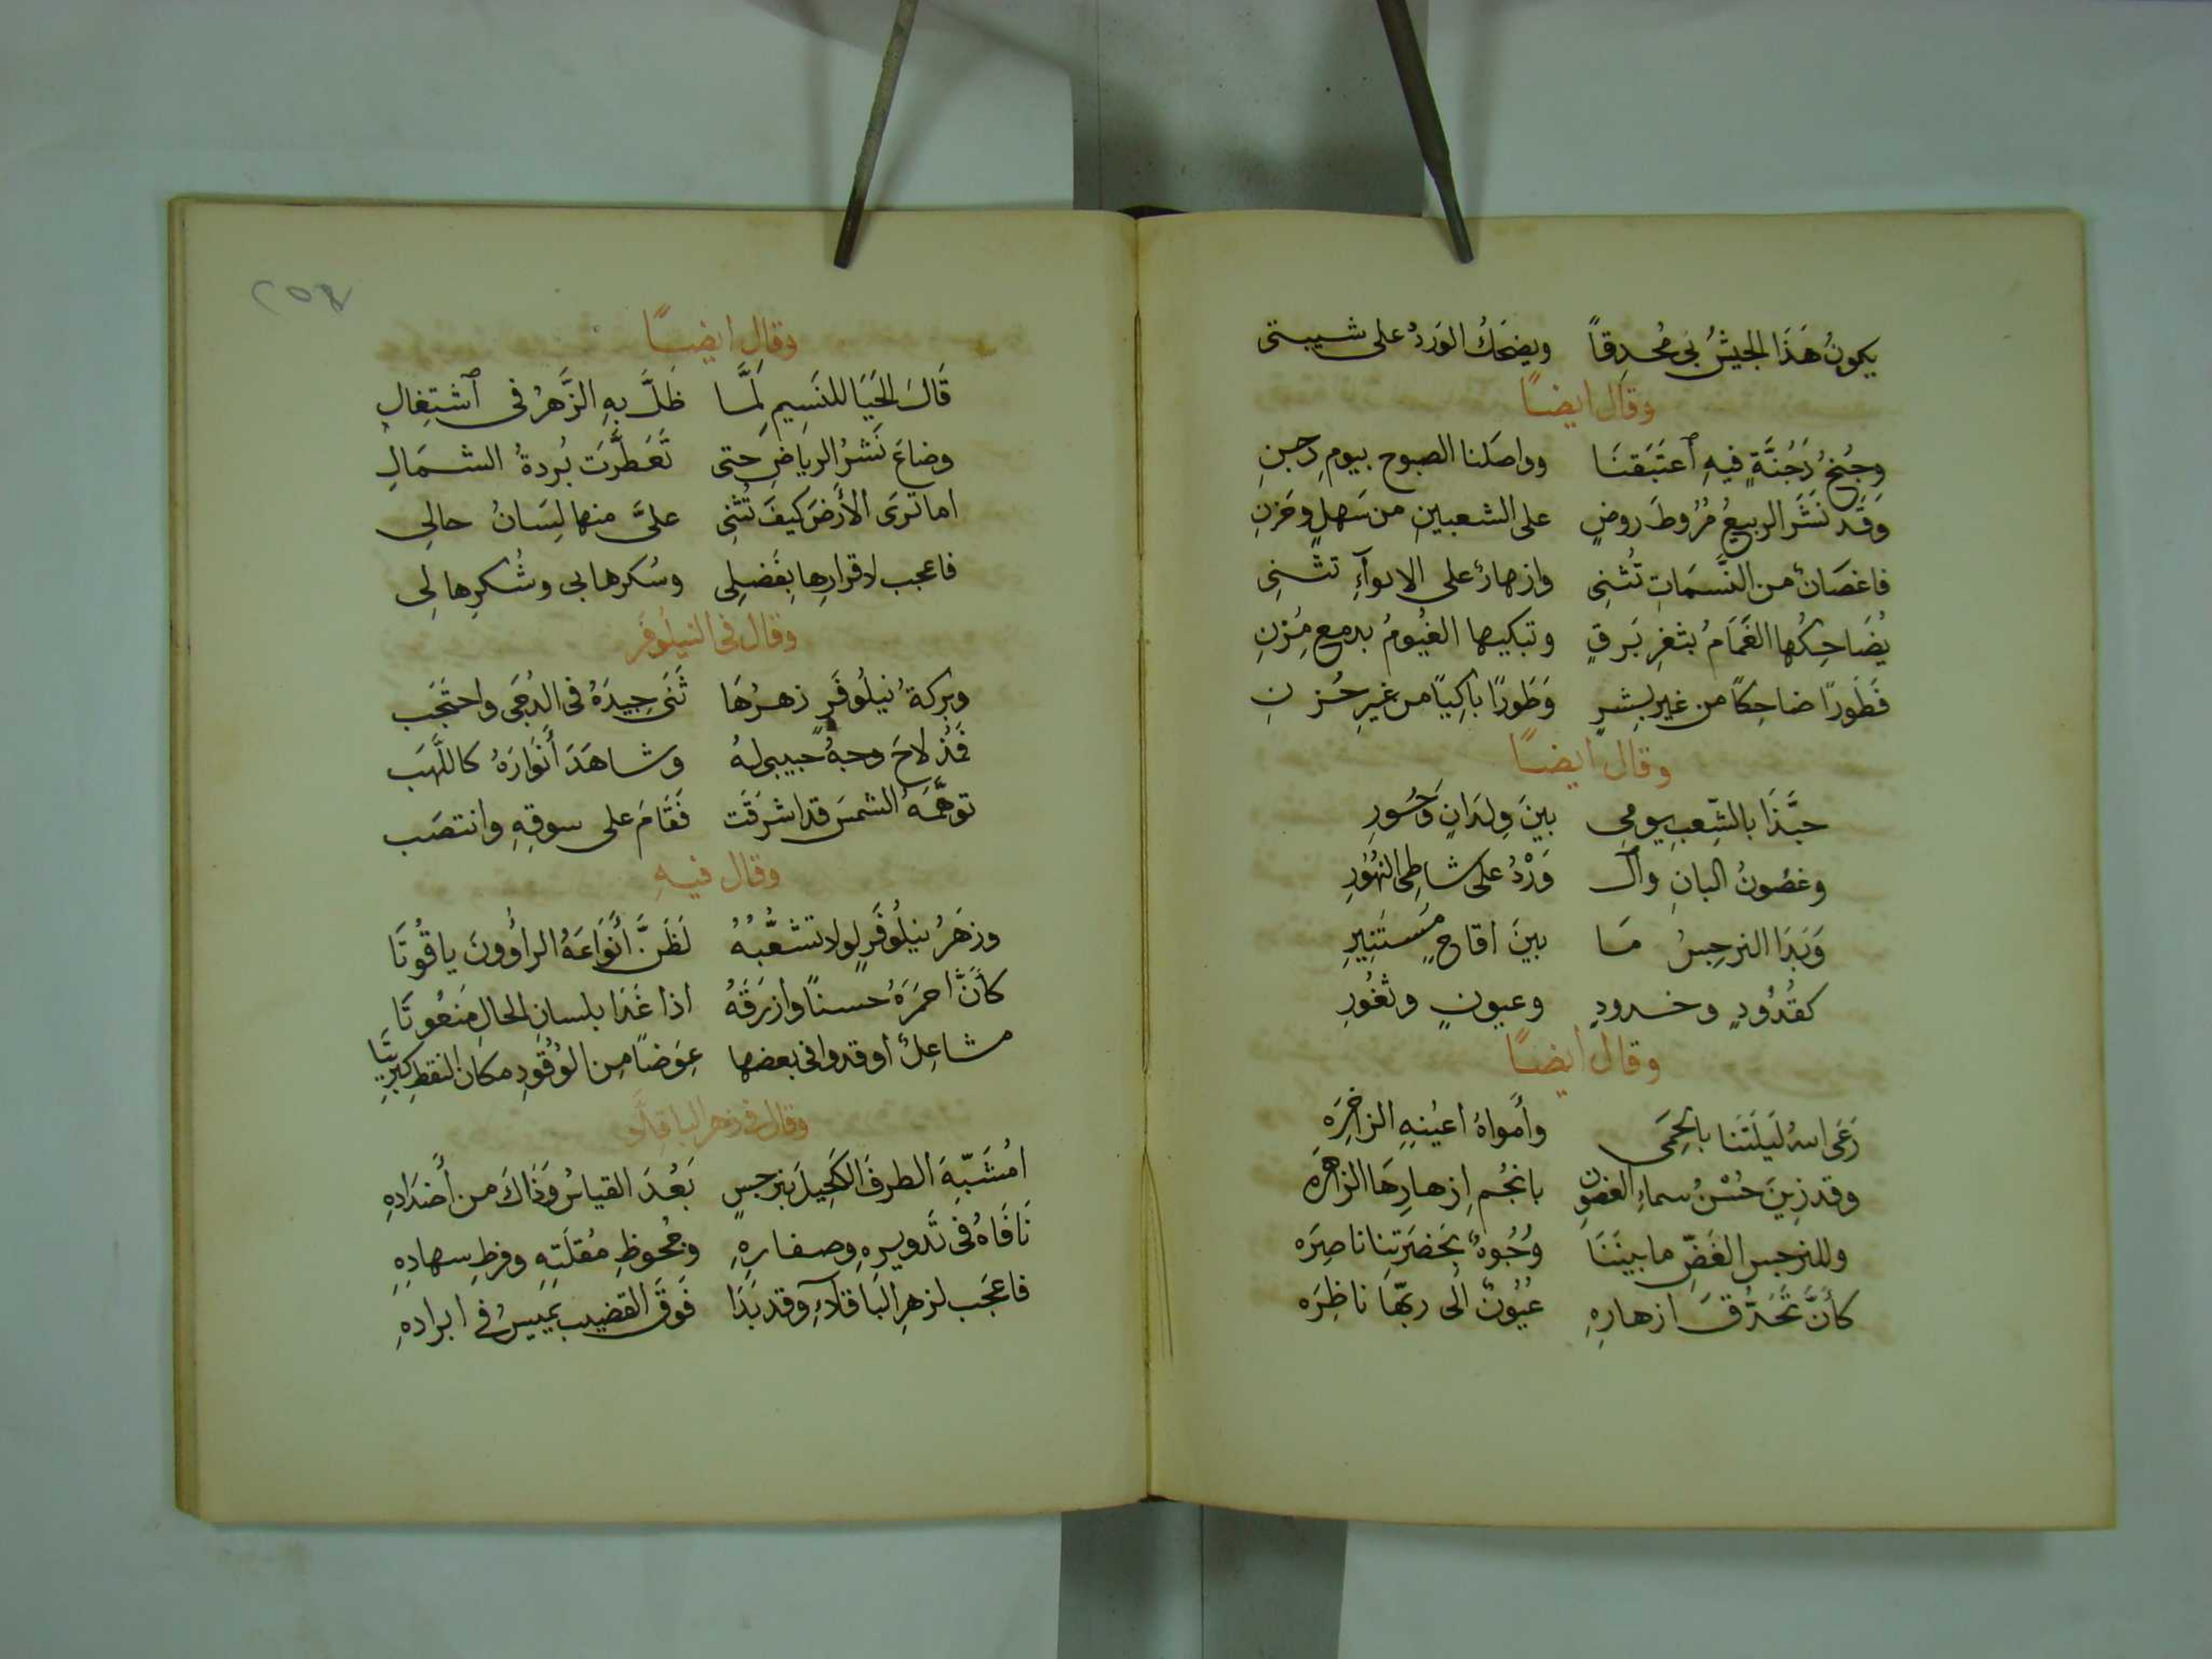 يكونُ هَذَا الجيشُ بى مُحدِقاً ويضحَكُ الوَردُ على شيبتى
وقال ايضًا
وجُنحُ دَجُنَّةٍ فيهِ ٱعتَبَقنَا وواصَلنا الصبوح بيومِ دجنِ
وَقَد نَشَرَ الربيعُ مُرُوطَ روضٍ على الشعبينِ من سَهلٍ وحَزنِ
فاغصَانٌ من النَّسَمَاتِ تُثنِى وازهارٌ على الانوآءِ تثنِى
يُضَاحِكُها الغَمَامُ بثغرِ بَرقٍ وتبكيها الغيُومُ بدمعِ مُزنِ
فَطَورًا ضاحِكًا من غير بِشرٍ وَطَورًا باكِيًا من غيرِ حُزنِ
وقال ايضًا
حبَّذَا بالشِّعبِ يومِى بينَ وِلدَانٍ وَحُورِ
وغصُونُ البانِ وال وَرْدُ على شاطِى النهُورِ
وَبَدَا النرجِسُ مَا بينَ اقاحٍ مُستَنِيرِ
كقُدُودٍ وخدودٍ وعيونٍ وثغُورِ
وقال ايضًا
رَعَى الله لَيلَتَنَا بالحِمَى وأَمواهُ اعيُنِهِ الزاخِرَه
وقد زِينَ حُسْنُ سماءِ الغصُونِ بانجُمِ ازهارِهَا الزاهرَه
وللنرجسِ الغَضِّ ما بينَنَا وُجُوهٌ بحَضرَتِنا ناضِرَه
كأنَّ تَحَدُّقَ ازهارِهِ عيُونٌ الَى ربّهَا ناظِرَه
وقال ايضًا
قَالَ الحَيَا للنَسِيمِ لَمَّا ظَلَّ بهِ الزَّهرُ فى ٱشتِغالِ
وضاعَ نَشرُ الرياضِ حتى تَعَطَّرَت بُردةُ الشمَالِ
اما ترَى الأَرضَ كيفَ تُثنِى علىَّ منها لِسَانُ حالِى
فاعجب لاقرارِها بِفَضلِى وسُكرها بى وشُكرِها لِى
وقال فى النيلُوفَر
وبركةُ نيلُوفَرٍ زهرُهَا ثَنَى جِيدَهُ فى الدُجَى واحتَجَب
فَمُذ لاحَ وجهُ حبيبى لهُ وشاهَدَ أَنوَارَهُ كاللَّهَب
توهَّمَهُ الشمسَ قد اشرَقَت فَقَامَ على سوقِهِ وانتصَب
وقال فيهِ
وزهرُ نيلُوفَرٍ لولا تشعُّبهُ لَظَنَّ أَنوَاعَهُ الراؤُونَ ياقُوتَا
كأنَّ احمَرَهُ حسنًا وازرَقَهُ اذا غَدَا بلسانِ الحالِ مَنعُوتَا
مشاعِلٌ أوقدوا فى بعضها عِوَضًا مِن الوُقُودِ مكان النفطِ كبرِيتَا
وقال فى زهر الباقلَّاءِ
امُشَبِّهَ الطرفَ الكَحِيلَ بنرجسٍ بَعُدَ القياسُ وَذَاكَ من أَضدَادِهِ
نَافَاهُ فى تَدوِيرِهِ وصفارِهِ وجحُوظِ مُقلَتِهِ وفرطِ سهادِهِ
فاعَجب لزهرِ البَاقلآءِ وقد بَدَا فَوقَ القضيبِ يَمِيسُ فى ابرادهِ